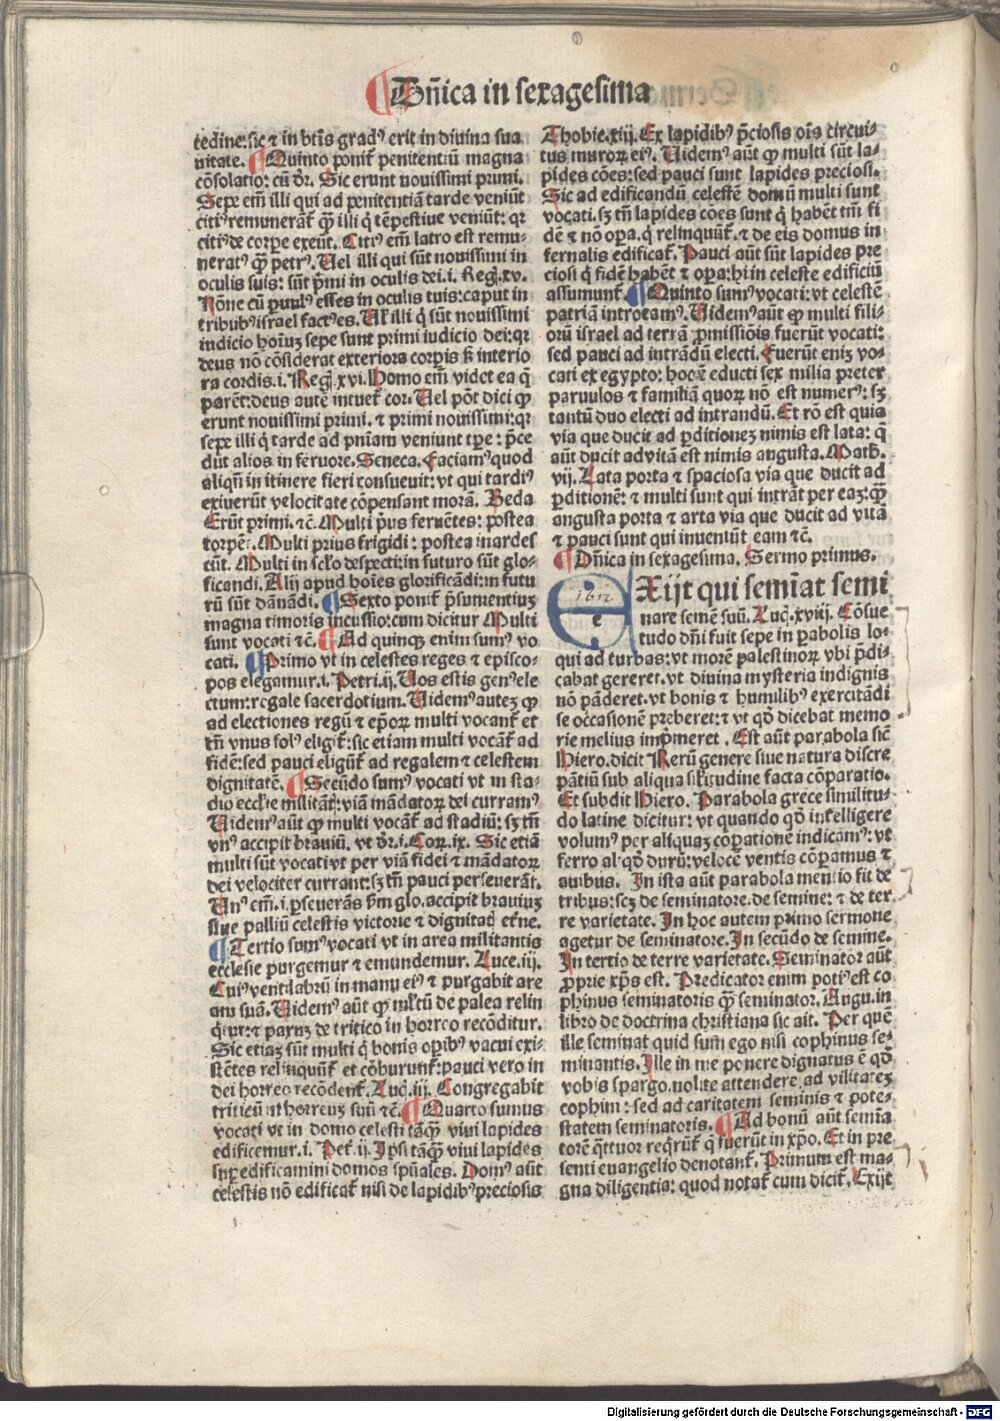 ¶ Dñica in sexagesima
tedine: sic ⁊ in btīs gradꝰ erit in diuina sua
uitate. ¶ Quinto poniť penitentiū magna
cōsolatio: cū dr̄. Sic erunt nouissimi primi.
Sepe em̄ illi qui ad penitentiā tarde veniūt
citiꝰ remunerāť qꝫ̄ illi q̇ tēpestiue veniūt: qꝛ
citiꝰ de corpe exeūt. Citiꝰ em̄ latro est remu-
neratꝰ qꝫ̄ petrꝰ. Uel illi qui sūt nouissimi in
oculis suis: sūt p̄mi in oculis dei. i. Reg. xv.
Nōne cū paruulꝰ esses in oculis tuis: caput in
tribubꝰ israel factꝰ es. Uľ illi q̇ sūt nouissimi
iudicio hoīuꝫ sepe sunt primi iudicio dei: qꝛ
deus nō cōsiderat exteriora corpis sꝫ interio
ra cordis. i. Reg. xvi. Homo em̄ videt ea q̄
parēt: deus autē intueť cor. Uel pōt dici ꝙ
erunt nouissimi primi. ⁊ primi nouissimi: qꝛ
sepe illi q̇ tarde ad pn̄iam veniunt tp̄e: p̄ce
dūt alios in feruore. Seneca. Faciamꝰ quod
aliqn̄ in itinere fieri consueuit: vt qui tardiꝰ
exiuerūt velocitate cōpensant morā. Beda
Erūt primi. ⁊c̄. Multi p̄us feruētes: postea
torpēt. Multi prius frigidi: postea inardes
cūt. Multi in sclo despecti: in futuro sūt glo-
ficandi. Alij apud hoīes glorificādi: in futu
rū sūt dānādi. ¶ Sexto poniť p̄sumentiuꝫ
magna timoris incussio: cum dicitur Multi
sunt vocati ⁊c̄. ¶ Ad quinqꝫ enim sumꝰ vo
cati. ¶ Primo vt in celestes reges ⁊ episco-
pos elegamur. i. Petri. ij. Uos estis genꝰ ele
ctum: regale sacerdotium. Uidemꝰ auteꝫ ꝙ
ad electiones regū ⁊ ep̄oꝝ multi vocanť et
tn̄ vnus solꝰ eligiť: sic etiam multi vocāť ad
fidē: sed pauci eligūť ad regalem ⁊ celestem
dignitatē. ¶ Secūdo sumꝰ vocati vt in sta-
dio eccľie militātꝭ: viā mādatoꝝ dei curramꝰ
Uidemꝰ aūt ꝙ multi vocāť ad stadiū: sꝫ tn̄
vnꝰ accipit brauiū. vt dr̄. i. Coꝝ. ix. Sic etiā
multi sūt vocati vt per viā fidei ⁊ mādatoꝝ
dei velociter currant: sꝫ tn̄ pauci perseuerāt.
Unꝰ em̄. i. p̱seuerās ẜm glo. accipit brauiuꝫ
siue palliū celestis victorie ⁊ dignitatꝭ et̄ne.
¶ Tertio sumꝰ vocati vt in area militantis
ecclesie purgemur ⁊ emundemur. Luce. iij.
Cuiꝰ ventilabrū in manu eiꝰ ⁊ purgabit are
am suā. Uidemꝰ aūt ꝙ mľtū de palea relin
q̇tur: ⁊ paruꝫ de tritico in horreo recōditur.
Sic etiaꝫ sūt multi q̇ bonis op̱ibꝰ vacui exi-
stētes relinquūť et cōburunť: pauci vero in
dei horreo recōdenť. Luc̄. iij. Congregabit
triticū in horreuꝫ suū ⁊c̄. ¶ Quarto sumus
vocati vt in domo celesti tāqꝫ̄ viui lapides
edificemur. i. Peť. ij. Ip̄si tāqꝫ̄ viui lapides
sup̱edificamini domos sp̄uales. Domꝰ aūt
celestis nō edificať nisi de lapidibꝰ preciosis
Thobie. xiij. Ex lapidibꝰ p̄ciosis oīs circui-
tus muroꝝ eiꝰ. Uidemꝰ aūt ꝙ multi sūt la-
pides cōes: sed pauci sunt lapides preciosi.
Sic ad edificandū celestē domū multi sunt
vocati. sꝫ tn̄ lapides cōes sunt q̇ habēt tm̄ fi
dē ⁊ nō opa. q̇ relinquūť. ⁊ de eis domus in
fernalis edificať. Pauci aūt sūt lapides pre
ciosi q̇ fidē habēt ⁊ opa: hi in celeste edificiū
assumunť. ¶ Quinto sumꝰ vocati: vt celestē
patriā introeamꝰ. Uidemꝰ aūt ꝙ multi fili-
orū israel ad terrā ꝓmissiōis fuerūt vocati:
sed pauci ad intrādū electi. Fuerūt eniꝫ vo-
cati ex egypto: hoc ē educti sex milia preter
paruulos ⁊ familiā quoꝝ nō est numerꝰ: sꝫ
tantū duo electi ad intrandū. Et rō est quia
via que ducit ad p̱ditioneꝫ nimis est lata: q̄
aūt ducit ad vitā est nimis angusta. Math.
vij. Lata porta ⁊ spaciosa via que ducit ad
p̱ditionē: ⁊ multi sunt qui intrāt per eaꝫ: qꝫ̄
angusta porta ⁊ arta via que ducit ad vitā
⁊ pauci sunt qui inueniūt eam ⁊c̄.
¶ Dñica in sexagesima. Sermo primus.
EXijt qui semīat semi
nare semē suū. Luc̄. xviij. Cōsue
tudo dn̄i fuit sepe in p̱abolis lo-
qui ad turbas: vt morē palestinoꝝ vbi p̄di-
cabat gereret. vt diuina mysteria indignis
nō pāderet. vt bonis ⁊ humilibꝰ exercitādi
se occasionē preberet: ⁊ vt qd̄ dicebat memo
rie melius imp̄meret. Est aūt parabola sic̄
Hiero. dicit Rerū genere siue natura discre
pātiū sub aliqua siľitudine facta cōparatio.
Et subdit Hiero. Parabola grece similitu-
do latine dicitur: vt quando qd̄ intelligere
volumꝰ per aliquaꝫ cōp̱ationē indicamꝰ: vt
ferro al'qd̄ durū: velocē ventis cōp̱amus ⁊
auibus. In ista aūt parabola mentio fit de
tribus: scꝫ de seminatore. de semine: ⁊ de ter
re varietate. In hoc autem primo sermone
agetur de seminatore. In secūdo de semine.
In tertio de terre varietate. Seminator aūt
ꝓprie xp̄s est. Predicator enim potiꝰ est co
phinus seminatoris qꝫ̄ seminator. Augu. in
libro de doctrina christiana sic ait. Per quē
ille seminat quid sum ego nisi cophinus se-
minantis. Ille in me ponere dignatus ē qd̄
vobis spargo. nolite attendere ad vilitateꝫ
cophini: sed ad caritatem seminis ⁊ pote-
statem seminatoris. ¶ Ad bonū aūt semīa
torē q̄ttuor req̇rūť q̄ fuerūt in xp̄o. Et in pre
senti euangelio denotanť. Primum est ma-
gna diligentia: quod notať cum diciť. Exijt
Digitalisierung gefördert durch die Deutsche Forschungsgemeinschaft - DFG